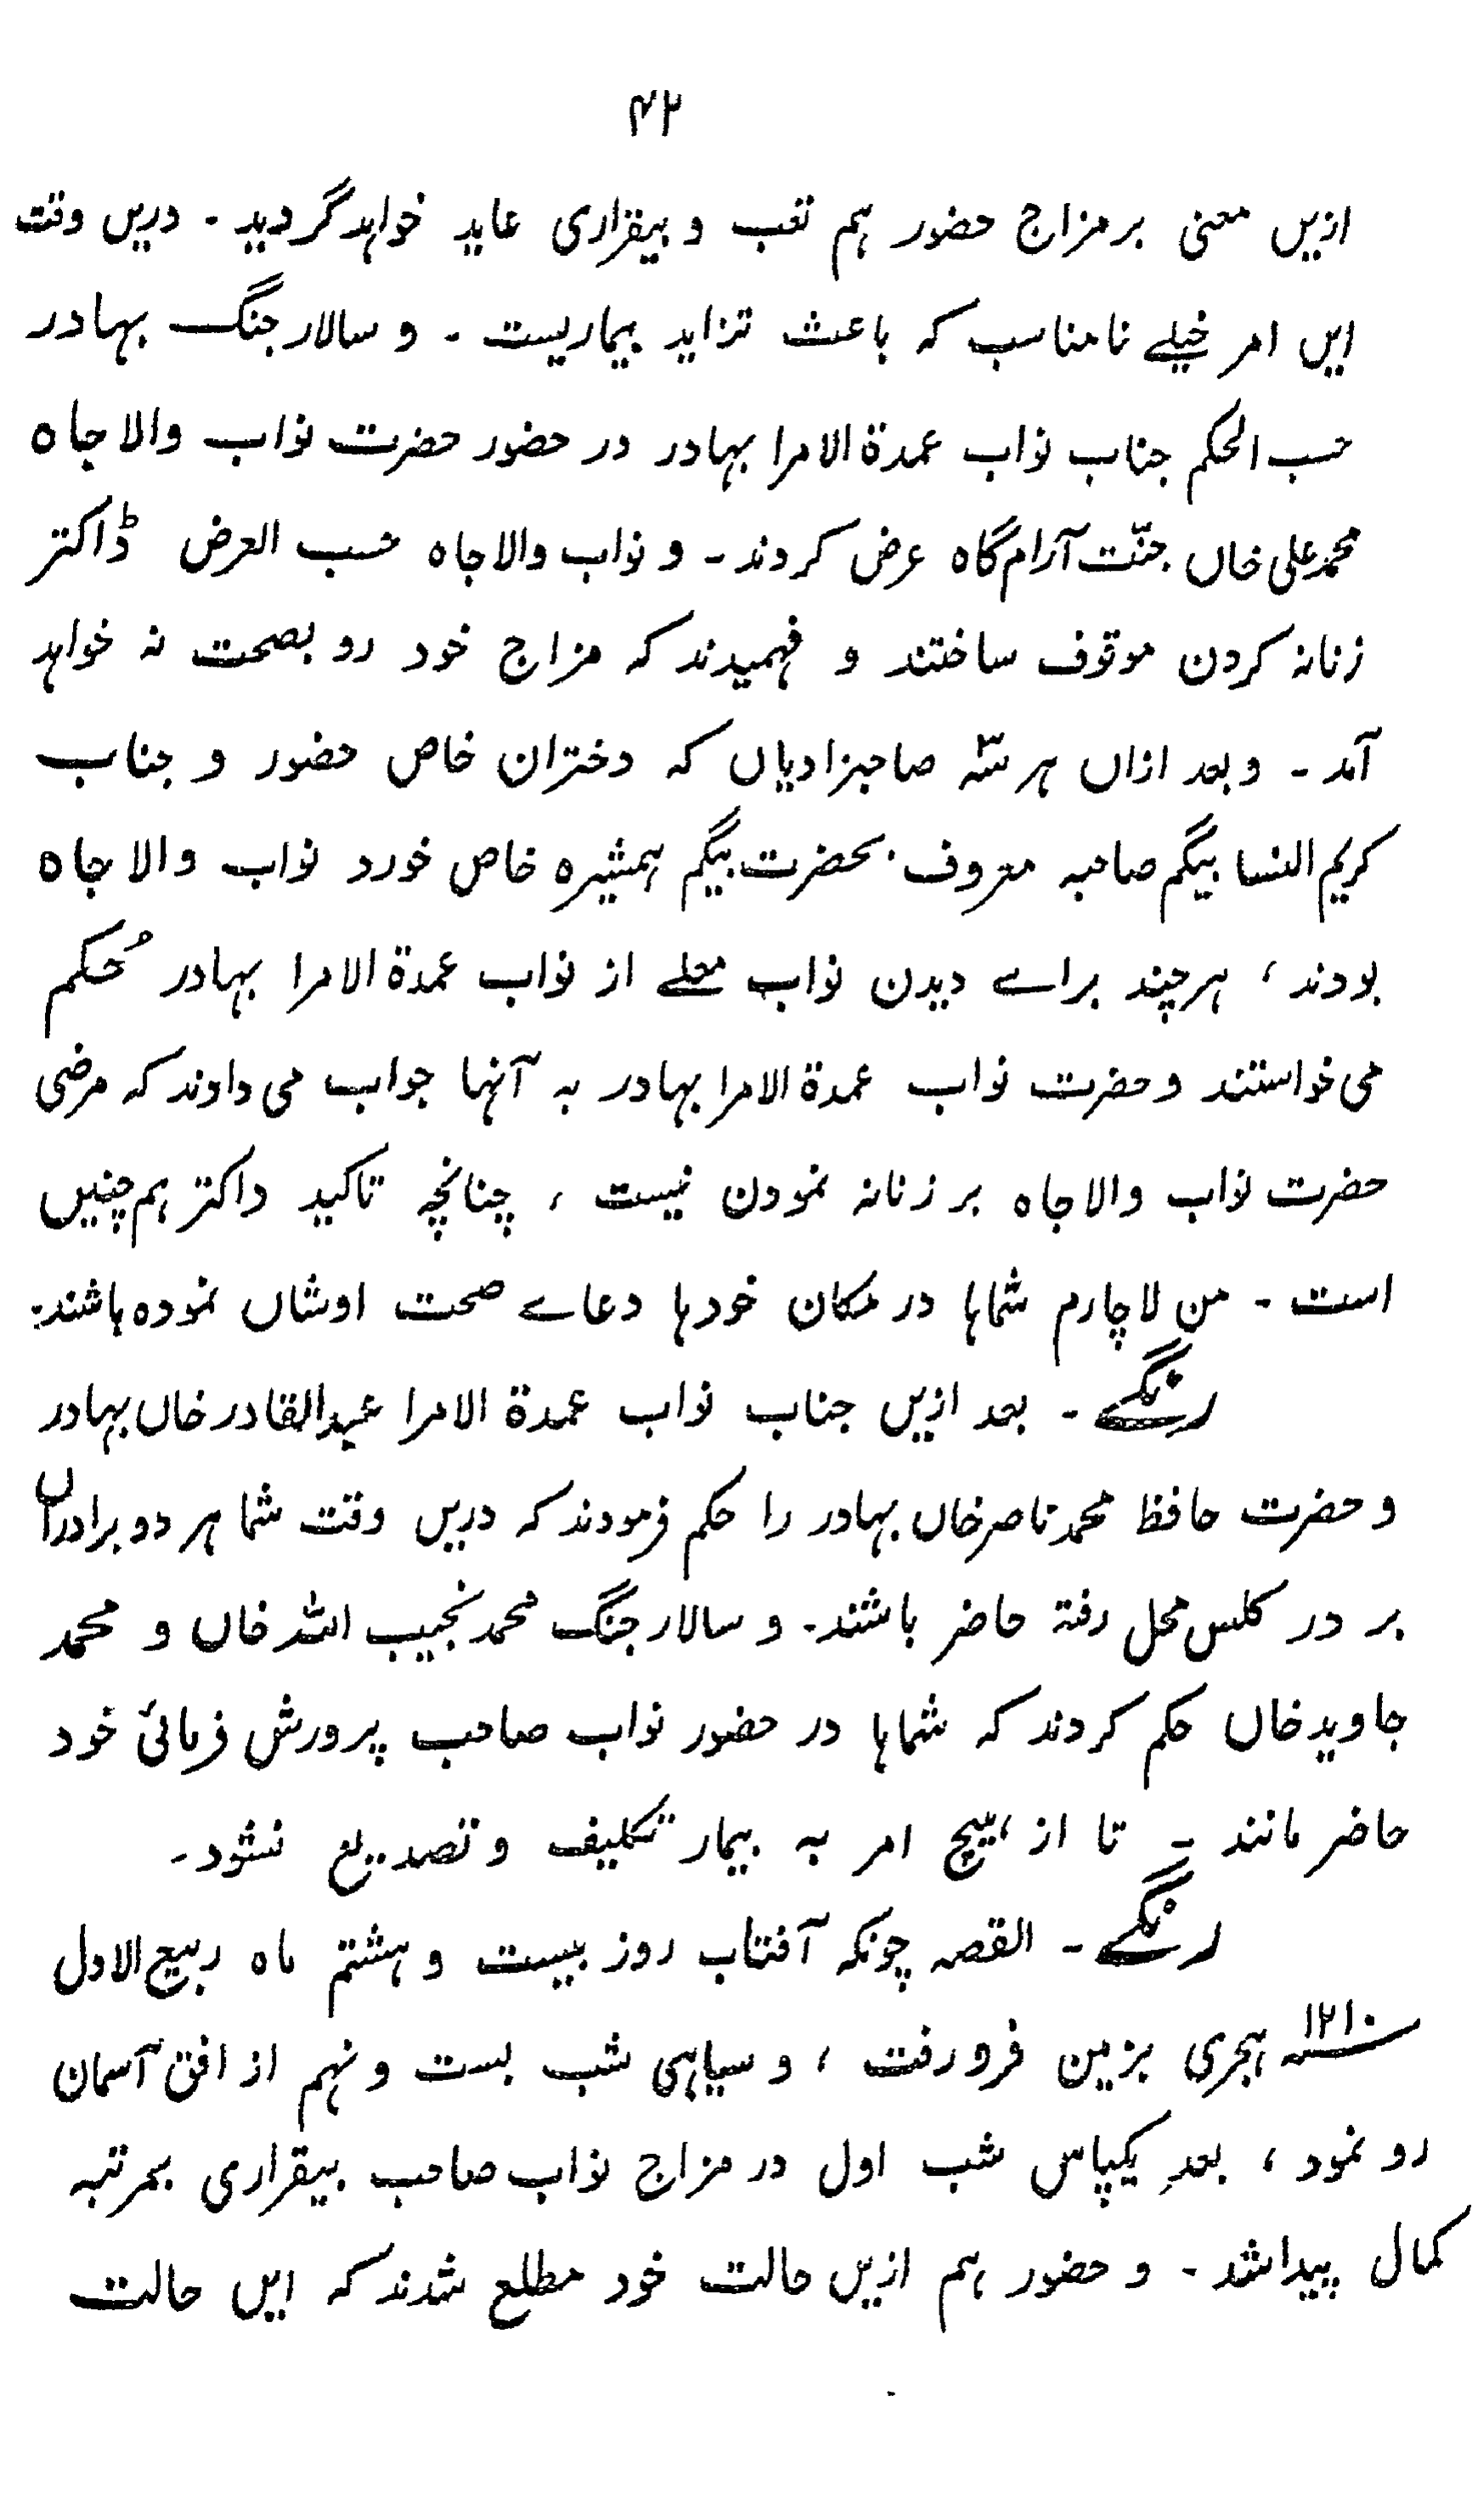 ۴۲
ازیں معنی بر مزاج حضور ہم تعب و بیقراری عاید خواہد گردید ۔ دریں وقت
ایں امر خیلے نامناسب کہ باعث تزاید بیماریست ۔ و سالار جنگ بہادر
حسب الحکم جناب نواب عمدۃ الامرا بہادر در حضور حضرت نواب والا جاہ
محمد علی خاں جنّت آرام گاہ عرض کردند ۔ و نواب والا جاہ حسب العرض ڈاکتر
زنانہ کردن موقوف ساختند و فہمیدند کہ مزاج خود رو بصحت نہ خواہد
آمد ۔ و بعد ازاں ہر سّہ صاحبزادیاں کہ دختران خاص حضور و جناب
کریم النسا بیگم صاحبہ معروف بحضرت بیگم ہمشیرہ خاص خورد نواب والا جاہ
بودند ، ہرچند براے دیدن نواب معلے از نواب عمدۃ الامرا بہادر حُکم
می خواستند و حضرت نواب عمدۃ الامرا بہادر بہ آنہا جواب می دادند کہ مرضی
حضرت نواب والا جاہ بر زنانہ نمودن نیست ، چنانچہ تاکید داکتر ہم چنیں
است ۔ من لاچارم شماہا در مکان خودہا دعاے صحت اوشاں نمودہ باشند۔
رنگے ۔ بعد ازیں جناب نواب عمدۃ الامرا عبدالقادر خاں بہادر
و حضرت حافظ محمد ناصر خاں بہادر را حکم فرمودند کہ دریں وقت شما ہر دو برادراں
بر در کلس محل رفتہ حاضر باشند۔ و سالار جنگ محمد نجیب اللہ خاں و محمد
جاوید خاں حکم کردند کہ شماہا در حضور نواب صاحب پرورش فرمائی خود
حاضر مانند ۔ تا از ہیچ امر بہ بیمار تکلیف و تصدیع نشود ۔
رنگے ۔ القصہ چونکہ آفتاب روز بیست و ہشتم ماہ ربیع الاول
سنہ ۱۲۱۰ ہجری بزمین فرو رفت ، و سیاہی شب بست و نہم از افق آسمان
رو نمود ، بعدِ یکپاس شب اول در مزاج نواب صاحب بیقراری بمرتبہ
کمال پیدا شد ۔ و حضور ہم ازیں حالت خود مطلع شدند کہ ایں حالت